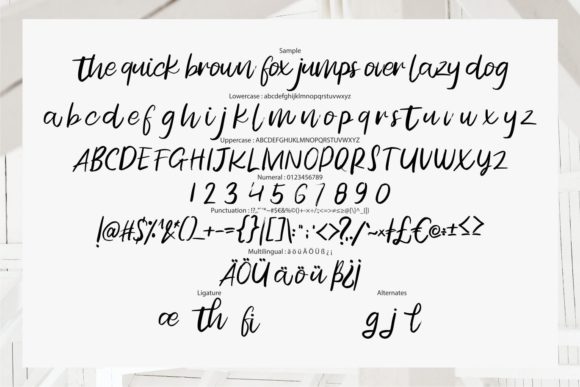 Sample
the quick brown fox jumps over lazy dog
Lowercase : abcdefghijklmnopqrstuvwxyz
a b c d e f g h i j k l m n o p q r s t u v w x y z
Uppercase : ABCDEFGHIJKLMNOPQRSTUVWXYZ
ABCDEFGHIJKLMNOPQRSTUVWXYZ
Numeral : 0123456789
1 2 3 4 5 6 7 8 9 0
Multilingual : ä ö ü Ä Ö Ü ß ¿ ¡
ÄÖÜ äöü ß¿¡
Ligature Alternates
æ th fi g j t